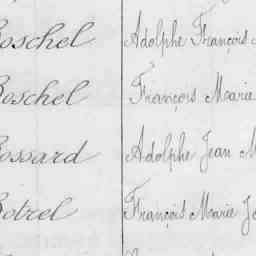 Boschel Adolphe François
Boschel François Marie
Bossard Adolphe Jean M
Botrel François Marie Je